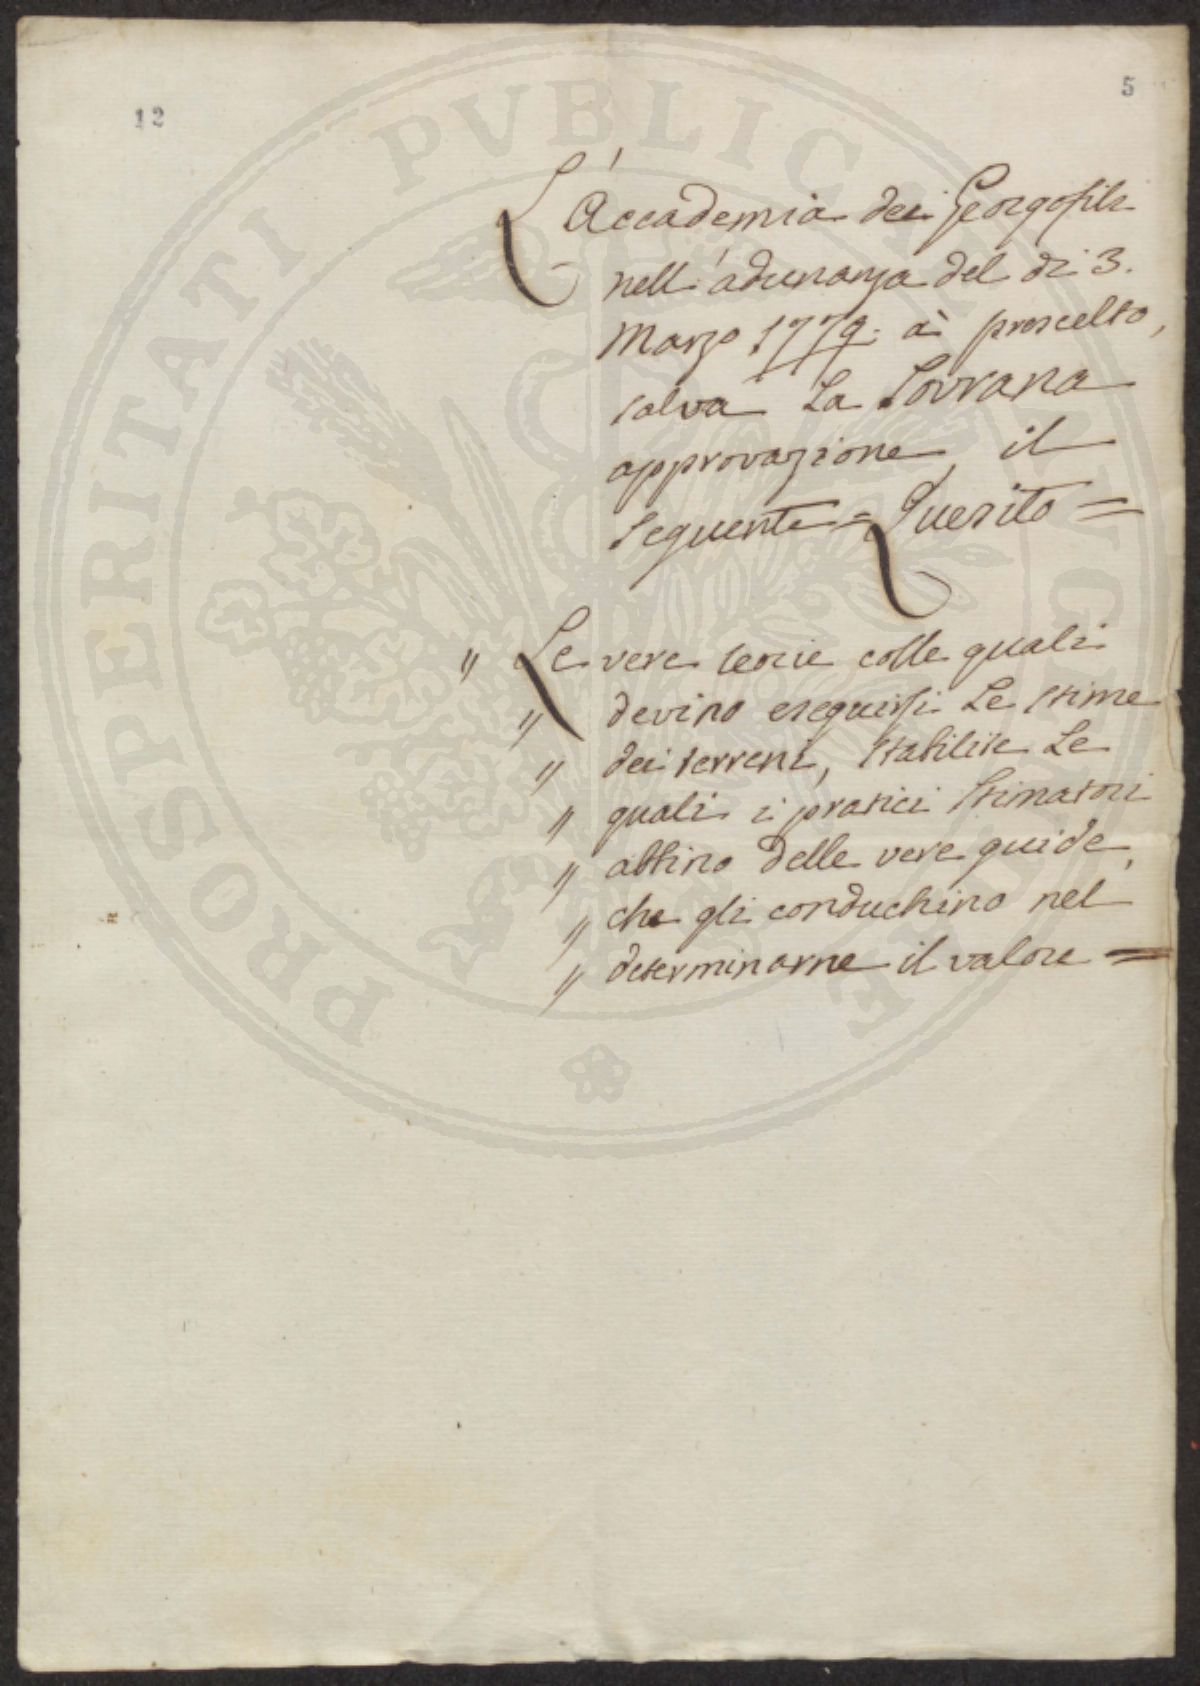 12
5
L'Accademia dei Georgofili
nell'adunanza del di 3.
Marzo 1779. à prescelto,
salva La Sovrana
approvazione, il
seguente = Quesito =
" Le vere teorie colle quali
" devino eseguirsi Le stime
" dei terreni, stabilite Le
" quali i pratici stimatori
" abbino delle vere guide,
" che gli conduchino nel
" determinarne il valore =
PROSPERITATI PVBLICAE AVGENDAE